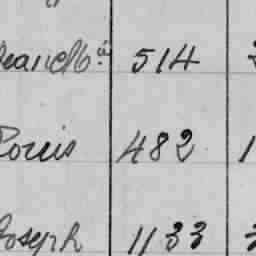 Jean Bte 514
Louis 482 1
Joseph 1133